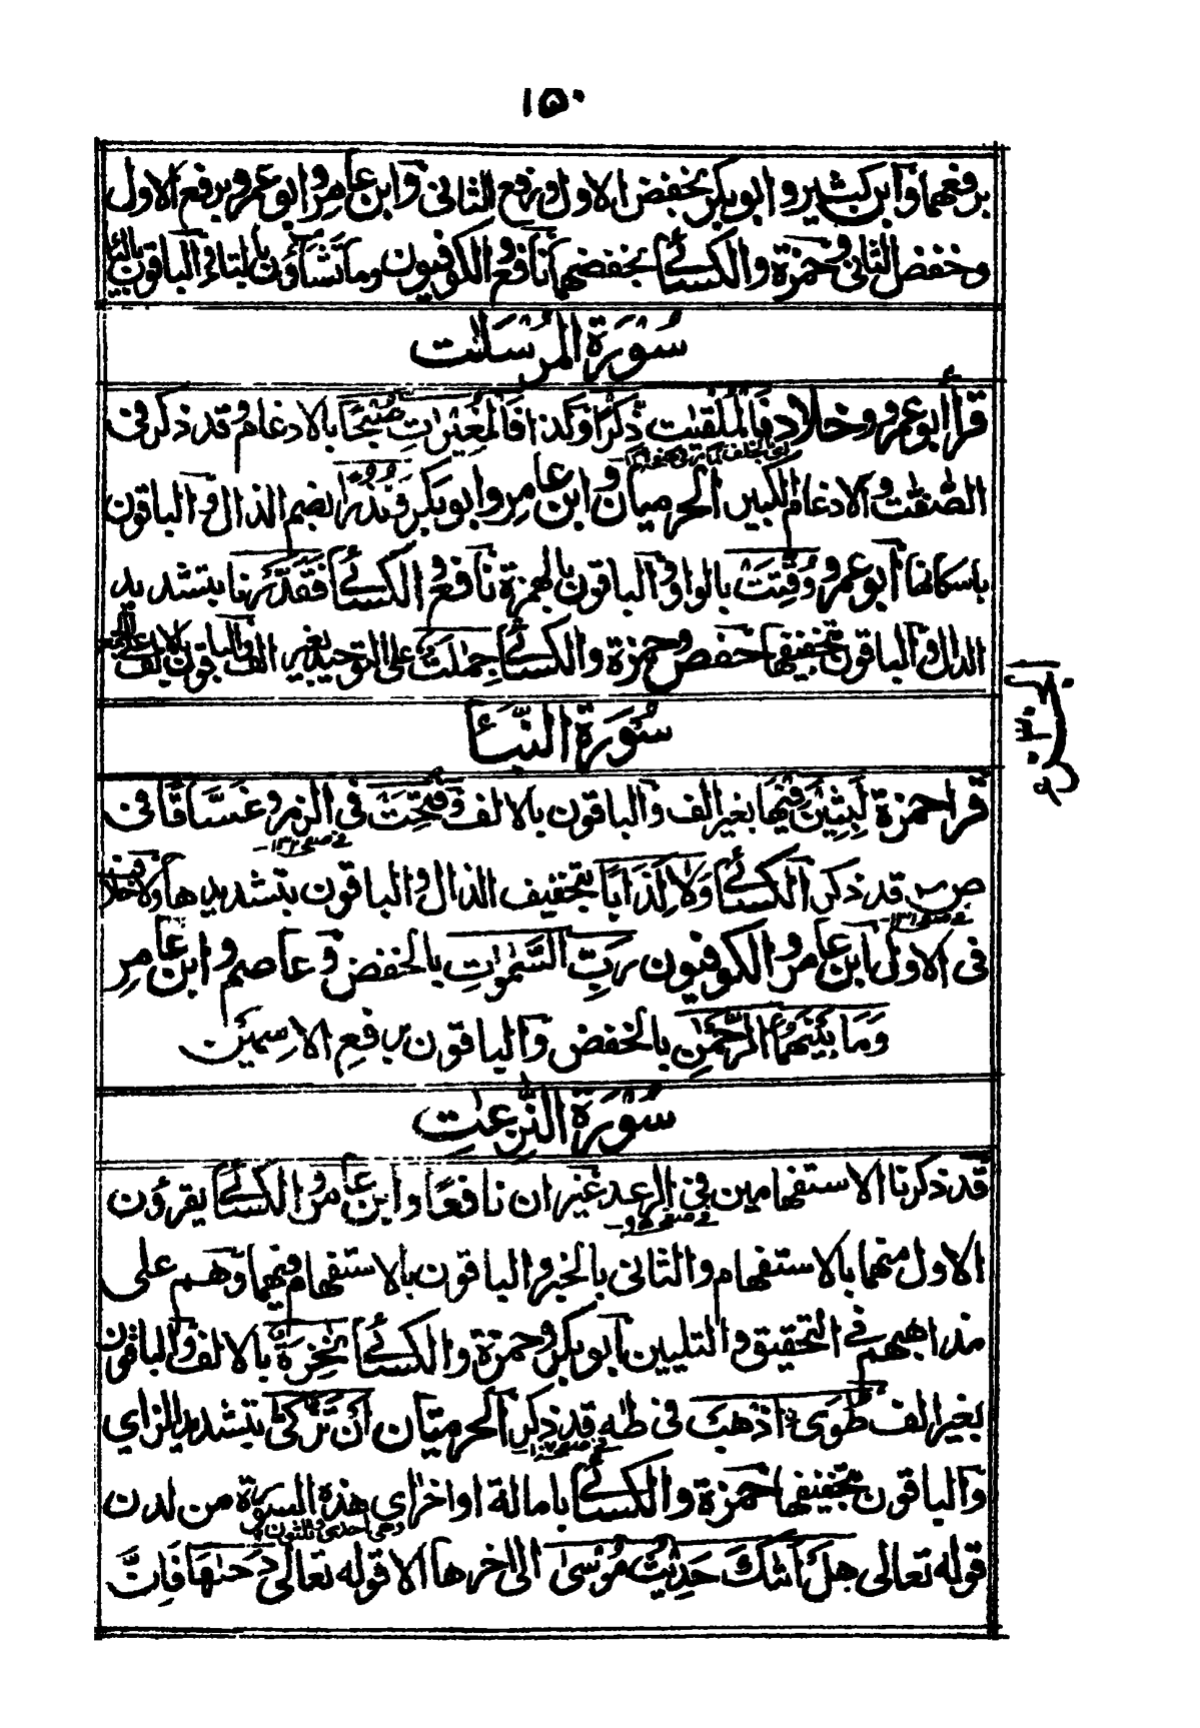 ١٥٠
برفعهما وابن كثير وابو بكر بخفض الاول ورفع الثانى وابن عامر وابو عمرو برفع الاول
وخفض الثانى وحمزة والكسائى بخفضهما نافع والكوفيون وما تشاؤن بالتاء والباقون بالياء
سُوْرَةُ المُرْسَلٰت
قرأ ابو عمرو وخلاد فَالْمُلْقِيٰت ذِّكْرًا وكذا فَالْمُغِيْرٰتِ صُّبْحًا بالادغام وقد ذكر فى
الصّٰفّٰت والادغام الكبير الحرميان وابن عامر وابو بكر وَنُذُرًا بضم الذال والباقون
باسكانها ابو عمرو وُقِّتَتْ بالواو والباقون بالهمزة نافع والكسائى فَقَدَّرْنا بتشديد
الدال والباقون بتخفيفها حفص وحمزة والكسائى جِمٰلَتٌ على التوحيد بغير الف والباقون بالالف على الجمع
الجزء ٣٠
سُوْرَةُ النَّبَأ
قرأ حمزة لَبِثِيْنَ فِيْهَا بغير الف والباقون بالالف وَفُتِحَتْ فى الزمر وغَسَّاقًا فى
فى صفحه ١٣٢
صٓ قد ذكر الكسائى وَلَا كِذَابًا بتخفيف الذال والباقون بتشديدها ولا خلاف
فى الاول ابن عامر والكوفيون رَبِّ السَّمٰوٰتِ بالخفض وعاصم وابن عامر
وَمَا بَيْنَهُمَا الرَّحْمٰنِ بالخفض والباقون برفع الاسمين
سُوْرَةُ النّٰزِعٰتِ
قد ذكرنا الاستفهامين فى الرعد غير ان نافعًا وابن عامر والكسائى يقرؤن
الاول منهما بالاستفهام والثانى بالخبر والباقون بالاستفهام فيهما وهم على
مذاهبهم فى التحقيق والتليين ابو بكر وحمزة والكسائى نٰخِرَةً بالالف والباقون
بغير الف طُوًى اذْهَبْ فى طٰه قد ذكر الحرميان اَنْ تَزَّكّٰى بتشديد الزاي
والباقون بتخفيفها حمزة والكسائى بامالة اواخر اى هذه السورة من لدن
وهى احدى وثلثون
قوله تعالى هَلْ اَتٰىكَ حَدِيْثُ مُوْسٰى الى اخرها الا قوله تعالى دَحٰىهَا فَاِنَّ